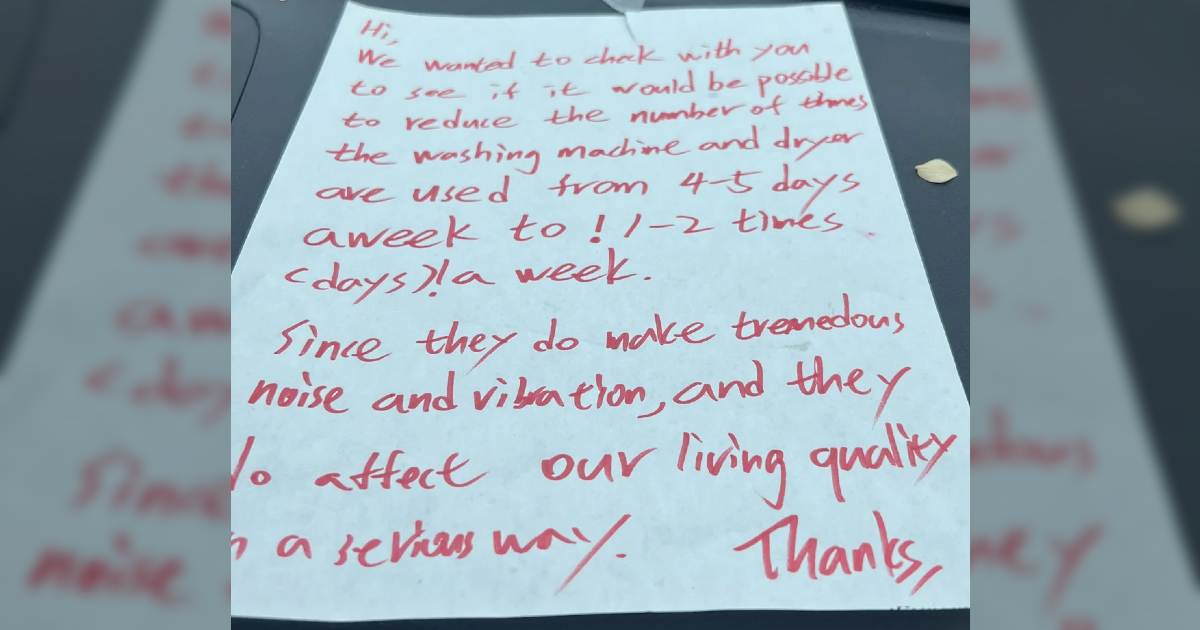 Hi,
We wanted to check with you
to see if it would be possible
to reduce the number of times
the washing machine and dryer
are used from 4-5 days
aweek to ! 1-2 times
(days)! a week.
Since they do make tremedous
noise and vibration, and they
do affect our living quality
a serious way. Thanks,